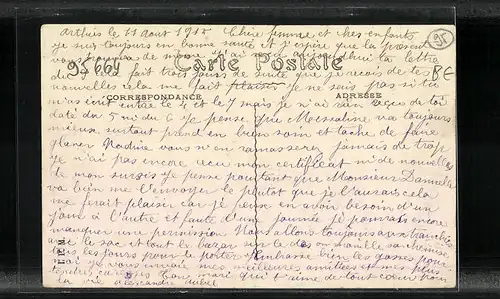 Arthies le 11 aout 1915 Chère femme et chers enfants
je suis toujours en bonne santé et j'espère que la présente
vous trouvera de même j'ai reçu aujourd'hui ta lettre
Carte Postale
97664
95
BE
du cela fait trois jours de suite que je reçois de tes
nouvelles cela me fait plaisir je ne sais pas si tu
CORRESPONDANCE
ADRESSE
m'as écrit entre le 4 et le 7 mais je n'ai rien reçu de toi
daté du 5 ni du 6 je pense que Messaline va toujours
mieux surtout prend en bien soin et tache de faire
glaner Nadine vous n'en ramasserez jamais de trop
je n'ai pas encore reçu mon certificat ni de nouvelles
de mon sursis je pense pourtant que Monsieur
va bien me l'envoyer le plutot que je l'aurais cela
me ferait plaisir car je pense en avoir besoin d'un
jour à l'autre et faute d'une journée je pourrais encore
manquer une permission Nous allons toujours aux tranchées
avec le sac et tout le bazar sur le dos on mouille sa chemise
tous les jours pour le porter Embrasse bien les gosses pour
moi je vous envoie mes meilleures amitiés et mes plus
tendres caresses Ton mari qui t'aime de tout cœur pour
la vie alexandre